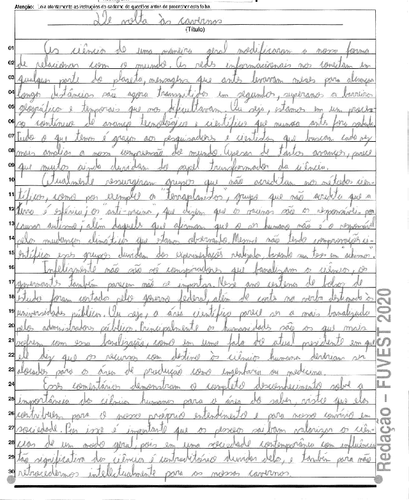 Atenção: Leia atentamente as instruções do caderno de questões antes de preencher esta folha.
De volta às cavernas
(Título)
01 As ciências de uma maneira geral modificaram a nossa forma
02 de relacionar com o mundo. As redes informacionais nos conectam em
03 qualquer parte do planeta, mensagens que antes levavam meses para alcançar
04 longas distâncias são agora transmitidas em segundos, superamos a barreira
05 geográfica e temporais que nos dificultavam. Ou seja, estamos em um processo
06 contínuo de avanço tecnológico e científico que nunca antes foi
07 Tudo o que temos é graças aos pesquisadores e cientistas que buscam cada vez
08 mais ampliar a nossa compreensão de mundo. Apesar de tantos avanços, parece
09 que muitos ainda duvidam do papel transformador da ciência.
10 Atualmente ressurgiram grupos que não acreditam nos métodos cien-
11 tíficos, como por exemplo o terraplanistas, grupo que não acredita que a
12 terra é esférica; os anti-vacina, que dizem que a vacina são os responsáveis por
13 causar autismo; além daqueles que afirmam que o ser humano não é o responsável
14 pelas mudanças climáticas que foram observadas. Mesmo não tendo comprovações ci-
15 entíficas esses grupos duvidam dos
16 Infelizmente não são só conspiradores que banalizam a ciência, os
17 governantes também parecem não se importar. Nesse ano centenas de bolsas de
18 estudo foram cortadas pelo governo federal, além de corte na verba destinada às
19 universidades públicas. Ou seja, a área científica parece ser a mais banalizada
20 pelos administradores públicos. Principalmente as humanidades são as que mais
21 sofrem com essa banalização, como em uma fala do atual presidente em que
22 ele diz que os recursos com destino às ciências humanas deveriam ser
23 alocados para a área de produção como engenharia ou medicina.
24 Esses comentários demonstram o completo desconhecimento sobre a
25 importância da ciências humanas para a área do saber, visto que elas
26 contribuem para o nosso próprio entendimento e para nosso convívio em
27 sociedade. Por isso é importante que as pessoas saibam valorizar as ciên-
28 cias de um modo geral, pois em uma sociedade contemporânea com influências
29 tão significativas da ciência é contraditório duvidar dela, e também para não
30 retrocedermos intelectualmente para as nossas cavernas.
Redação – FUVEST 2020